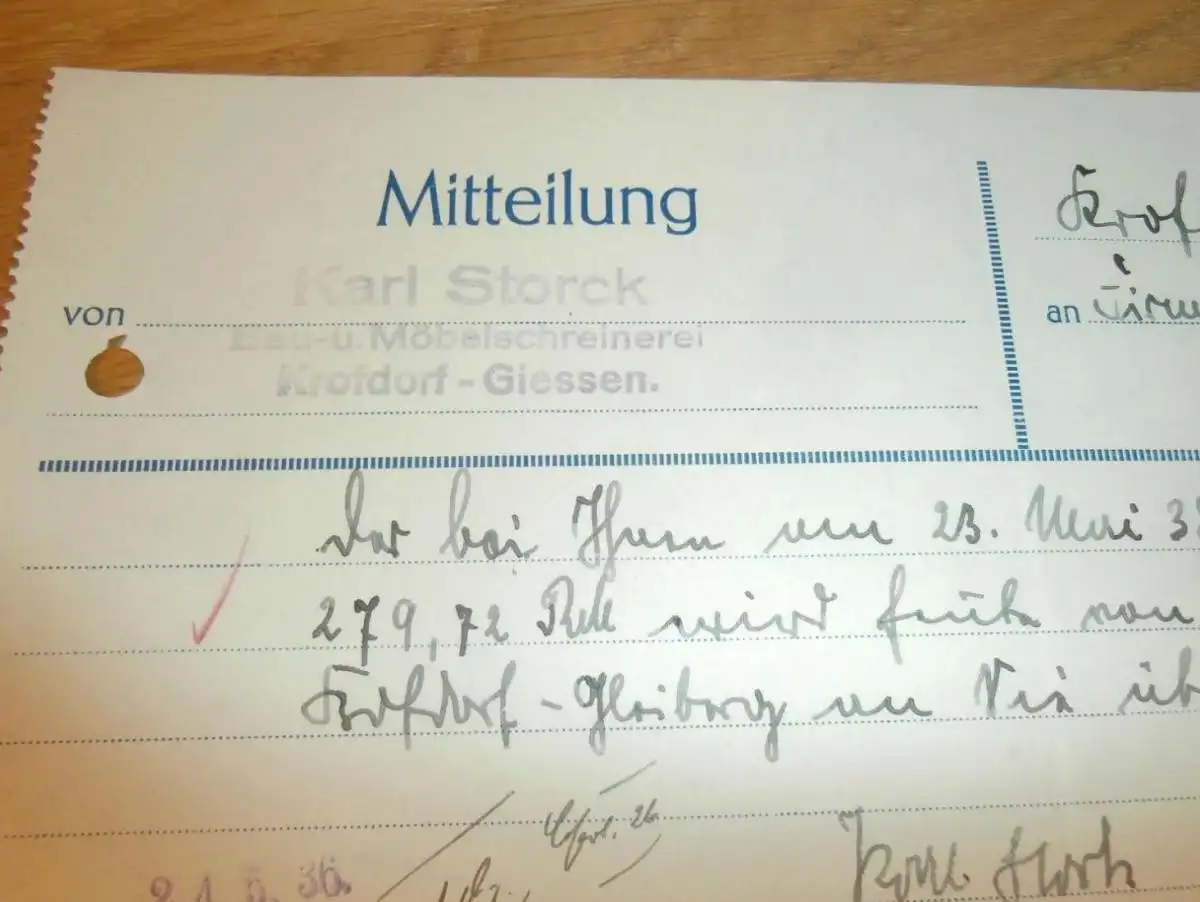 Mitteilung
Krof
Karl Storck
von
an Firm
Bau- u. Möbelschreinerei
Krofdorf - Giessen.
Der bei Ihnen am 23. Mai 3
279,72 RM wird heute von
Krofdorf-Gleiberg an Sie üb
24.5.36.
Karl Storck